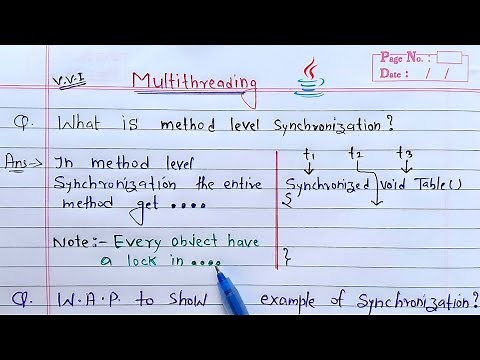 Page No. :
Date : / /
V.V.I Multithreading
Q. What is method level Synchronization?
Ans:-> In method level
Synchronization the entire
method get ....
Note:- Every object have
a lock in ....
t1 t2 t3
Synchronized void Table()
{
}
Q. W.A.P. to show example of Synchronization?